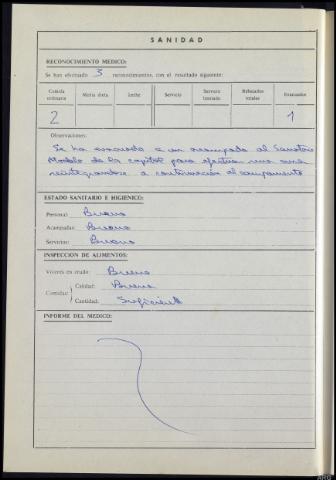 SANIDAD
RECONOCIMIENTO MEDICO:
Se han efectuado 3 reconocimientos, con el resultado siguiente:
Comida ordinaria Media dieta Leche Servicio Servicio limitado Rebajados totales Evacuados
2 1
Observaciones:
Se ha evacuado a un acampado al Sanatorio
Modelo de la capital para efectuar una cura
reintegrandose a continuación al campamento
ESTADO SANITARIO E HIGIENICO:
Personal: Bueno
Acampados: Bueno
Servicios: Bueno
INSPECCION DE ALIMENTOS:
Víveres en crudo: Bueno
Comidas: Calidad: Buena
Cantidad: Suficiente
INFORME DEL MEDICO: